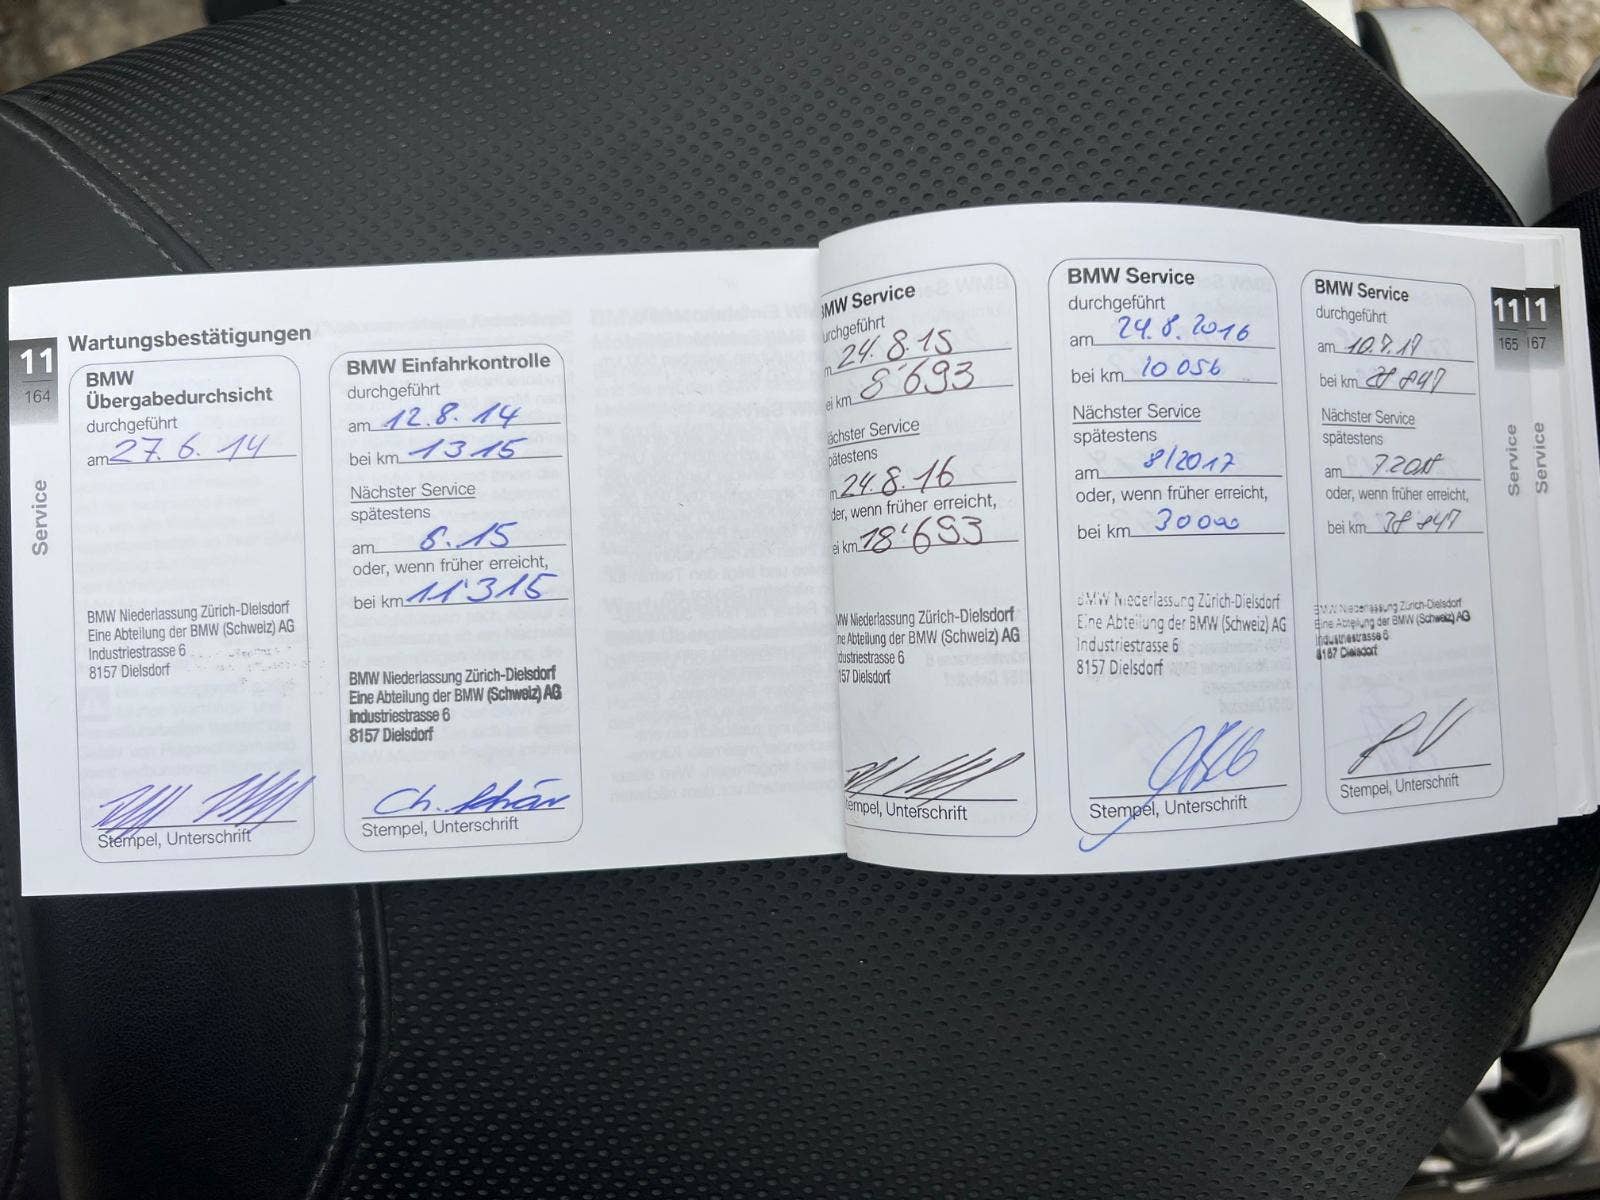 11
164
Service
Wartungsbestätigungen
BMW
Übergabedurchsicht
durchgeführt
am 27. 6. 14
BMW Niederlassung Zürich-Dielsdorf
Eine Abteilung der BMW (Schweiz) AG
Industriestrasse 6
8157 Dielsdorf
Stempel, Unterschrift
BMW Einfahrkontrolle
durchgeführt
am 12. 8. 14
bei km 1315
Nächster Service
spätestens
am 6. 15
oder, wenn früher erreicht,
bei km 11'315
BMW Niederlassung Zürich-Dielsdorf
Eine Abteilung der BMW (Schweiz) AG
Industriestrasse 6
8157 Dielsdorf
Stempel, Unterschrift
BMW Service
urchgeführt
m 24. 8. 15
ei km 8'693
ächster Service
pätestens
m 24. 8. 16
der, wenn früher erreicht,
ei km 18'693
MW Niederlassung Zürich-Dielsdorf
ne Abteilung der BMW (Schweiz) AG
dustriestrasse 6
157 Dielsdorf
tempel, Unterschrift
BMW Service
durchgeführt
am 24. 8. 2016
bei km 10 056
Nächster Service
spätestens
am 8/2017
oder, wenn früher erreicht,
bei km 30000
BMW Niederlassung Zürich-Dielsdorf
Eine Abteilung der BMW (Schweiz) AG
Industriestrasse 6
8157 Dielsdorf
Stempel, Unterschrift
BMW Service
durchgeführt
am 10.7.17
bei km
Nächster Service
spätestens
am
oder, wenn früher erreicht,
bei km
BMW Niederlassung Zürich-Dielsdorf
Eine Abteilung der BMW (Schweiz) AG
Industriestrasse 6
8157 Dielsdorf
Stempel, Unterschrift
11
165
Service
1
67
Service